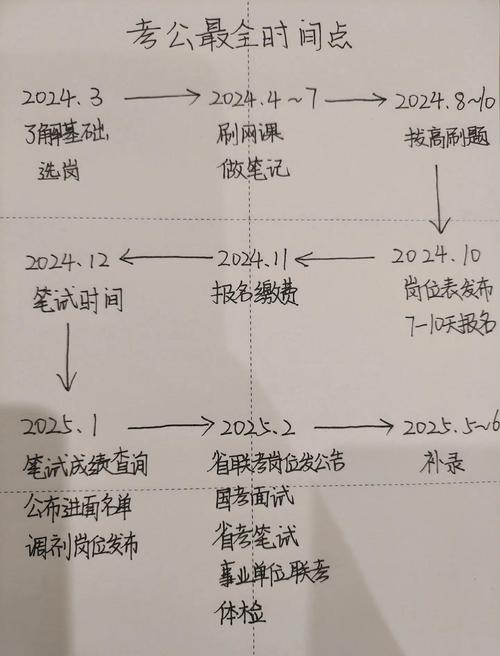 考公最全时间点
2024.3
了解基础
选岗
2024.4~7
刷网课
做笔记
2024.8~10
拔高刷题
2024.10
岗位表发布
7-10天报名
2024.11
报名缴费
2024.12
笔试时间
2025.1
笔试成绩查询
公布进面名单
调剂岗位发布
2025.2
省联考岗位发公告
国考面试
省考笔试
事业单位联考
体检
2025.5~6
补录